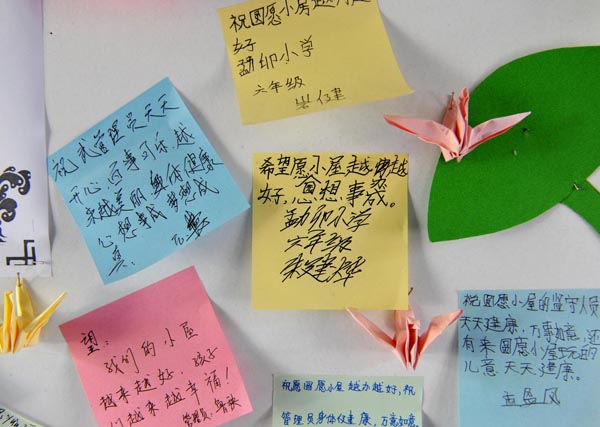 祝圆愿小屋越办越
好
勐卯小学
六年级
祝武管理员天天
开心,百事可乐,越
来越美丽,身体健康
心想事成 梦想成
真。
希望愿小屋越办越
好,意想事成。
勐卯小学
六年级
望:
我们的小屋
越来越好,孩子
们越来越幸福!
管理员:
祝愿圆愿小屋越办越好,祝
管理员身体健康,万事如意
祝圆愿小屋的坚守人员
天天健康,万事如意,还
有来圆愿小屋玩的
儿童天天健康。